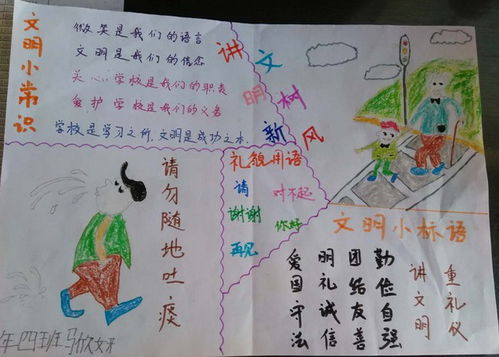 文明小常识
微笑是我们的语言
文明是我们的信念
关心学校是我们的职责
爱护学校是我们的义务
学校是学习之所,文明是成功之本.
讲文明树新风
礼貌用语
请
对不起
谢谢
你好
再见
请勿随地吐痰
文明小标语
爱国守法
明礼诚信
团结友善
勤俭自强
讲文明
重礼仪
年四班马欣